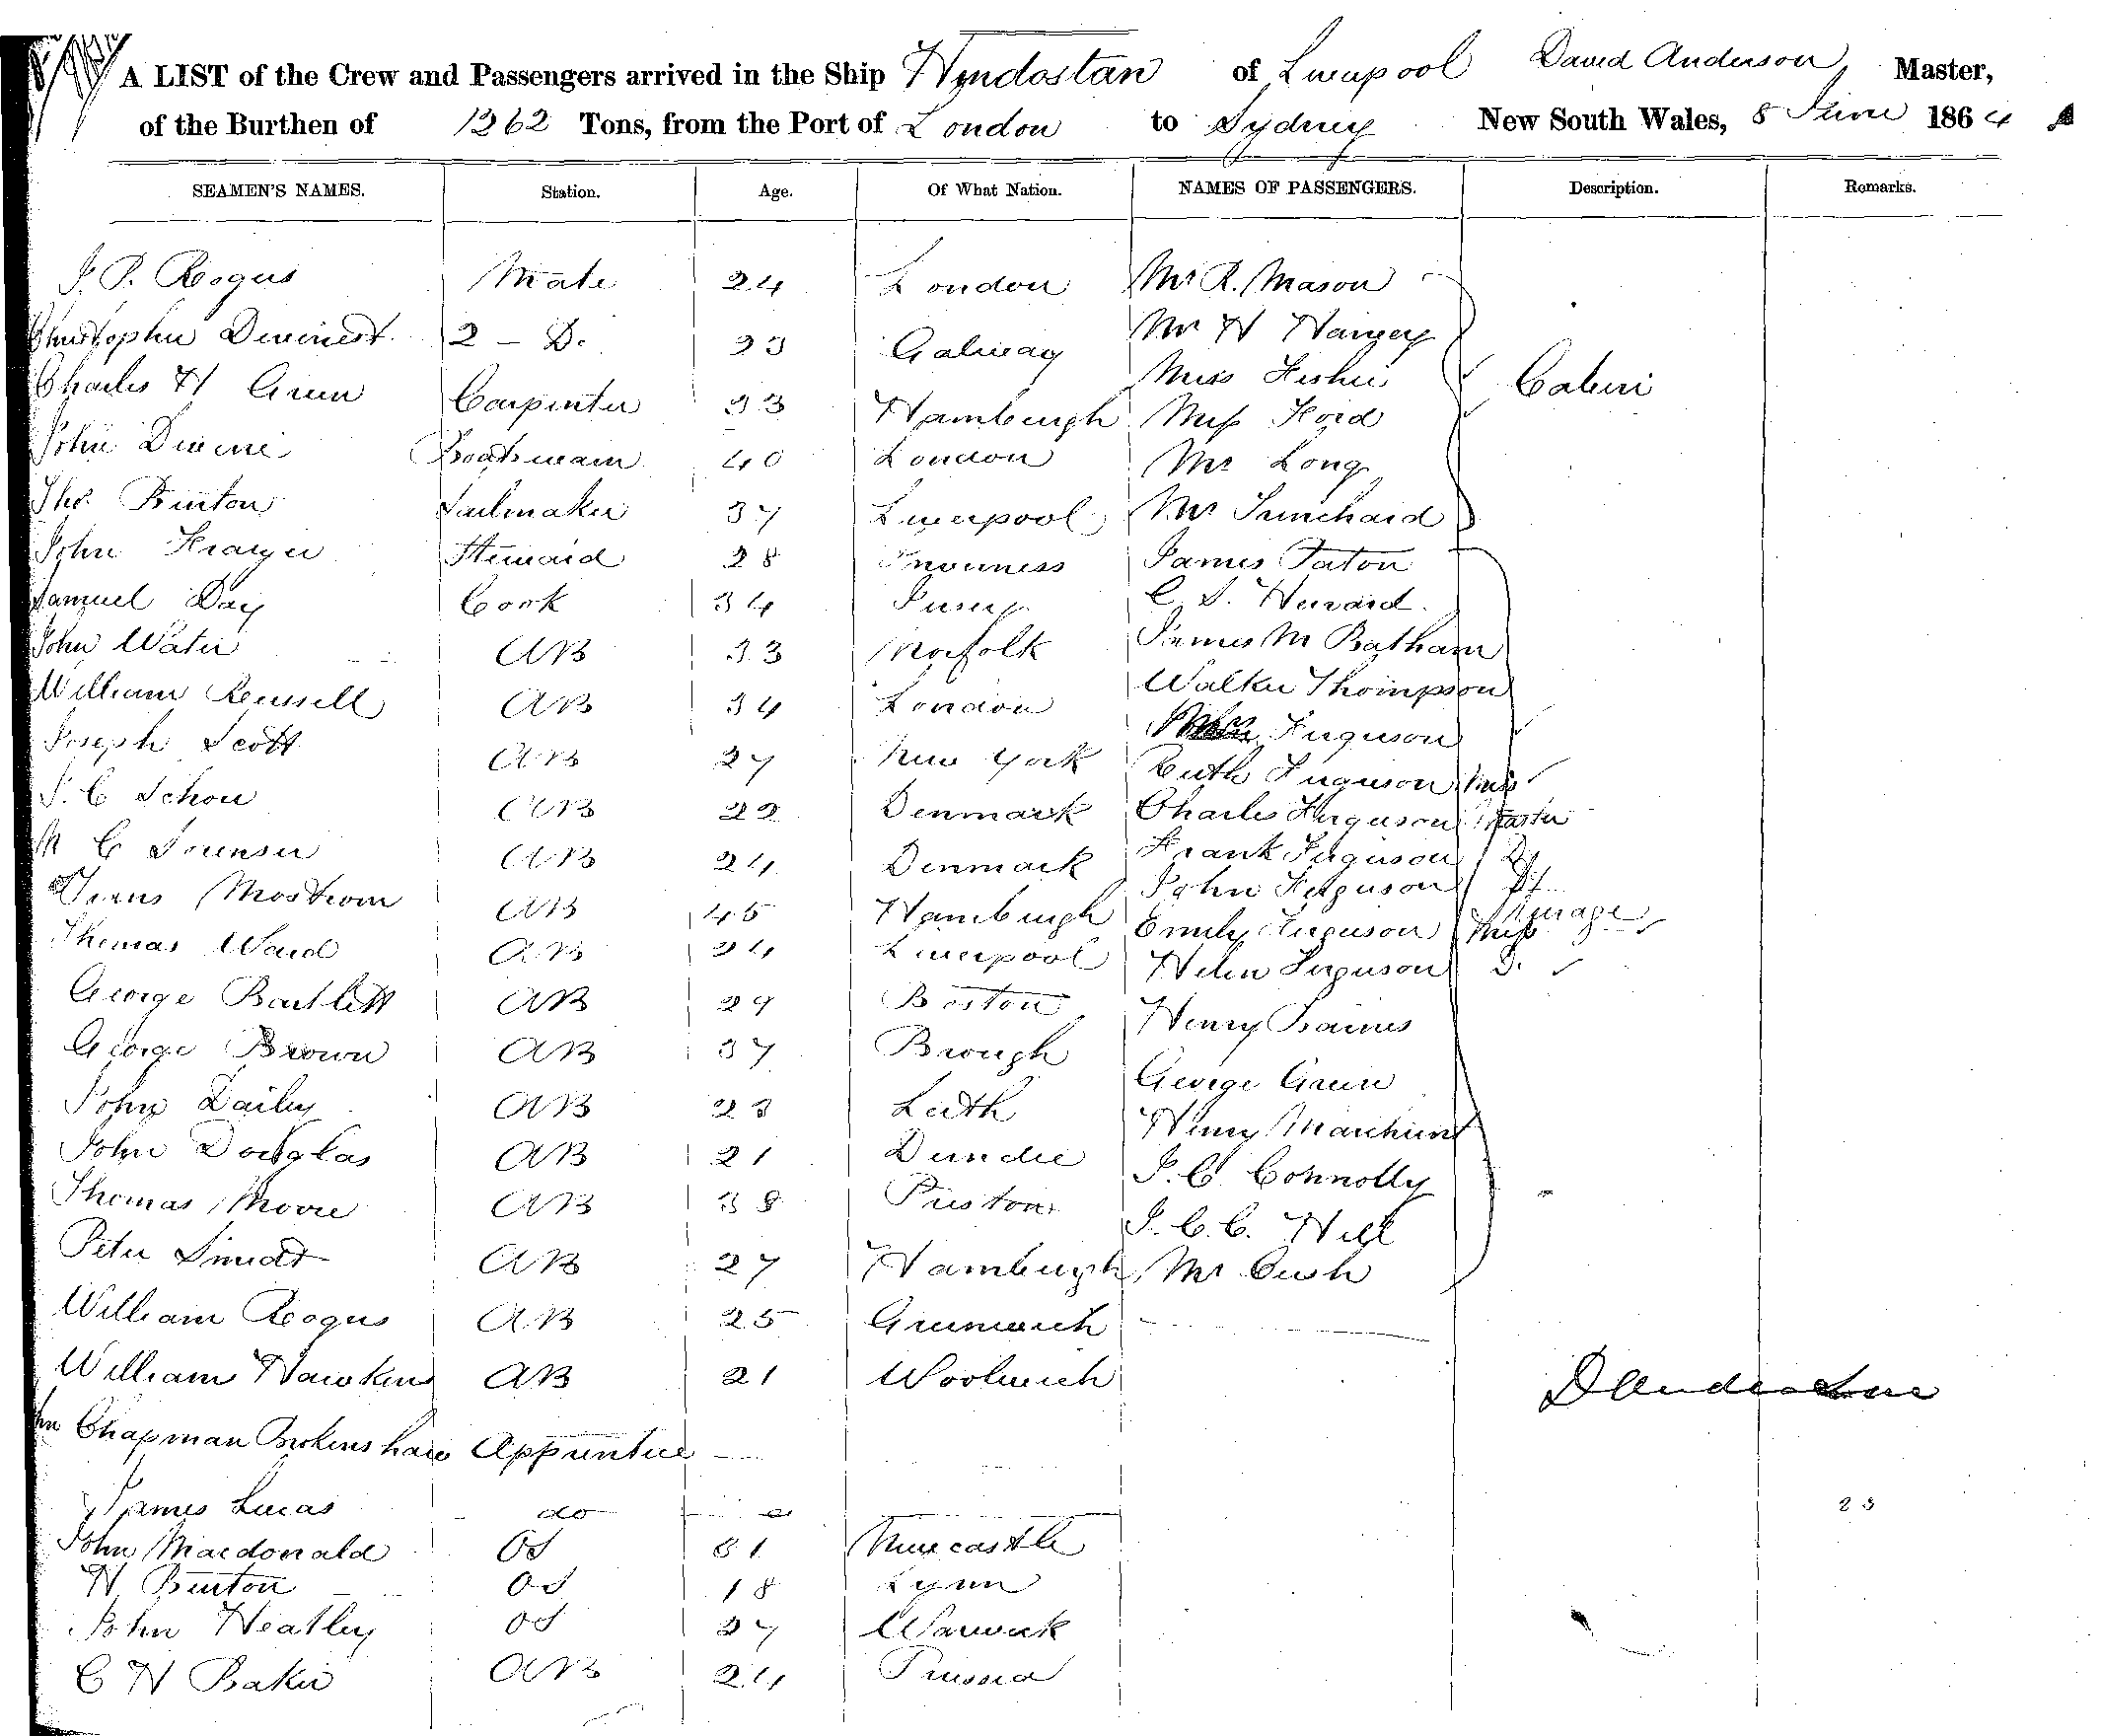 A LIST of the Crew and Passengers arrived in the Ship Hindostan of Liverpool David Anderson, Master,
of the Burthen of 1362 Tons, from the Port of London to Sydney New South Wales, 8 June 1864
SEAMEN'S NAMES. Station. Age. Of What Nation. NAMES OF PASSENGERS. Description. Remarks.
J. P. Rogers Mate 24 London Mr R. Mason
Christopher 2 - Do. 33 Galway Mr H Harvey
Charles H Green Carpenter 33 Hamburgh Miss Fisher Cabin
John Devine Boatswain 40 London Miss Ford
Thos. Burton Sailmaker 37 Liverpool Mr Long
John Frazer Steward 28 Inverness Mr
Samuel Day Cook 34 Jersey James Paton
John Water AB 33 Norfolk C. S. Heward
William Russell AB 34 London James M Batham
Joseph Scott AB 27 New York Walter Thompson
J. C Schou AB 22 Denmark Ferguson
M C Sorensen AB 24 Denmark Ruth Ferguson Miss
Mostrom AB 45 Hamburgh Charles Ferguson Master
Thomas Ward AB 24 Liverpool Frank Ferguson Do
George Bartlett AB 29 Boston John Ferguson Do
George Brown AB 37 Brough Emily Ferguson Miss Steerage
John Dailey AB 23 Leith Helen Ferguson D.
John Douglas AB 21 Dundee Henry Baines
Thomas Moore AB 38 Preston George Green
Peter Smidt AB 27 Hamburgh Henry Marchant
William Rogers AB 25 Greenwich J. C. Connolly
William Hawkins AB 21 Woolwich J. C. C. Hill
Chapman Brokenshaw Apprentice Mr Cush
James Lucas do
D Anderson
23
John Macdonald OS 21 Newcastle
H Burton OS 18 Lynn
John Heatley OS 27 Warwick
C H Baker AB 24 Prussia